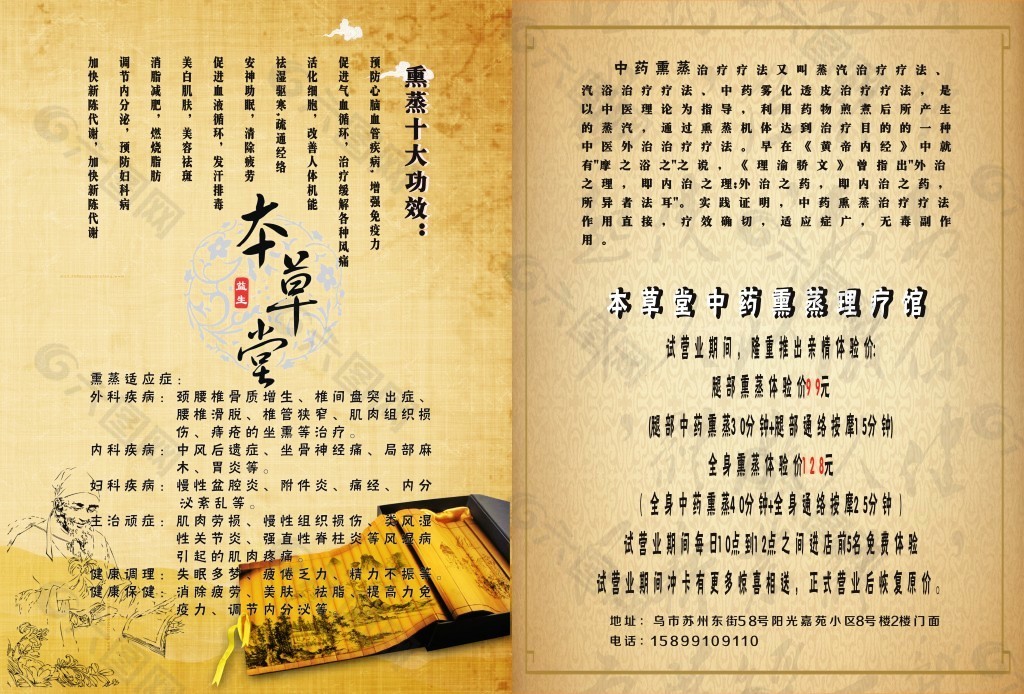 熏蒸十大功效：
预防心脑血管疾病，增强免疫力
促进气血循环，治疗缓解各种风痛
活化细胞，改善人体机能
祛湿驱寒，疏通经络
安神助眠，清除疲劳
促进血液循环，发汗排毒
美白肌肤，美容祛斑
消脂减肥，燃烧脂肪
调节内分泌，预防妇科病
加快新陈代谢，加快新陈代谢
本草堂
益生
熏蒸适应症：
外科疾病：颈腰椎骨质增生、椎间盘突出症、
腰椎滑脱、椎管狭窄、肌肉组织损
伤、痔疮的坐熏等治疗。
内科疾病：中风后遗症、坐骨神经痛、局部麻
木、胃炎等。
妇科疾病：慢性盆腔炎、附件炎、痛经、内分
泌紊乱等。
主治顽症：肌肉劳损、慢性组织损伤、类风湿
性关节炎、强直性脊柱炎等风湿病
引起的肌肉疼痛
健康调理：失眠多梦、疲倦乏力、精力不振等。
健康保健：消除疲劳、美肤、祛脂、提高力免
疫力、调节内分泌等
中药熏蒸治疗疗法又叫蒸汽治疗疗法、
汽浴治疗疗法、中药雾化透皮治疗疗法，是
以中医理论为指导，利用药物煎煮后所产生
的蒸汽，通过熏蒸机体达到治疗目的的一种
中医外治治疗疗法。早在《黄帝内经》中就
有"摩之浴之"之说，《理渝骄文》曾指出"外治
之理，即内治之理;外治之药，即内治之药，
所异者法耳"。实践证明，中药熏蒸治疗疗法
作用直接，疗效确切，适应症广，无毒副作
用。
本草堂中药熏蒸理疗馆
试营业期间，隆重推出亲情体验价:
腿部熏蒸体验价99元
(腿部中药熏蒸30分钟+腿部通络按摩15分钟)
全身熏蒸体验价128元
（全身中药熏蒸40分钟+全身通络按摩25分钟）
试营业期间每日10点到12点之间进店前5名免费体验
试营业期间冲卡有更多惊喜相送，正式营业后恢复原价。
地址：乌市苏州东街58号阳光嘉苑小区8号楼2楼门面
电话：15899109110